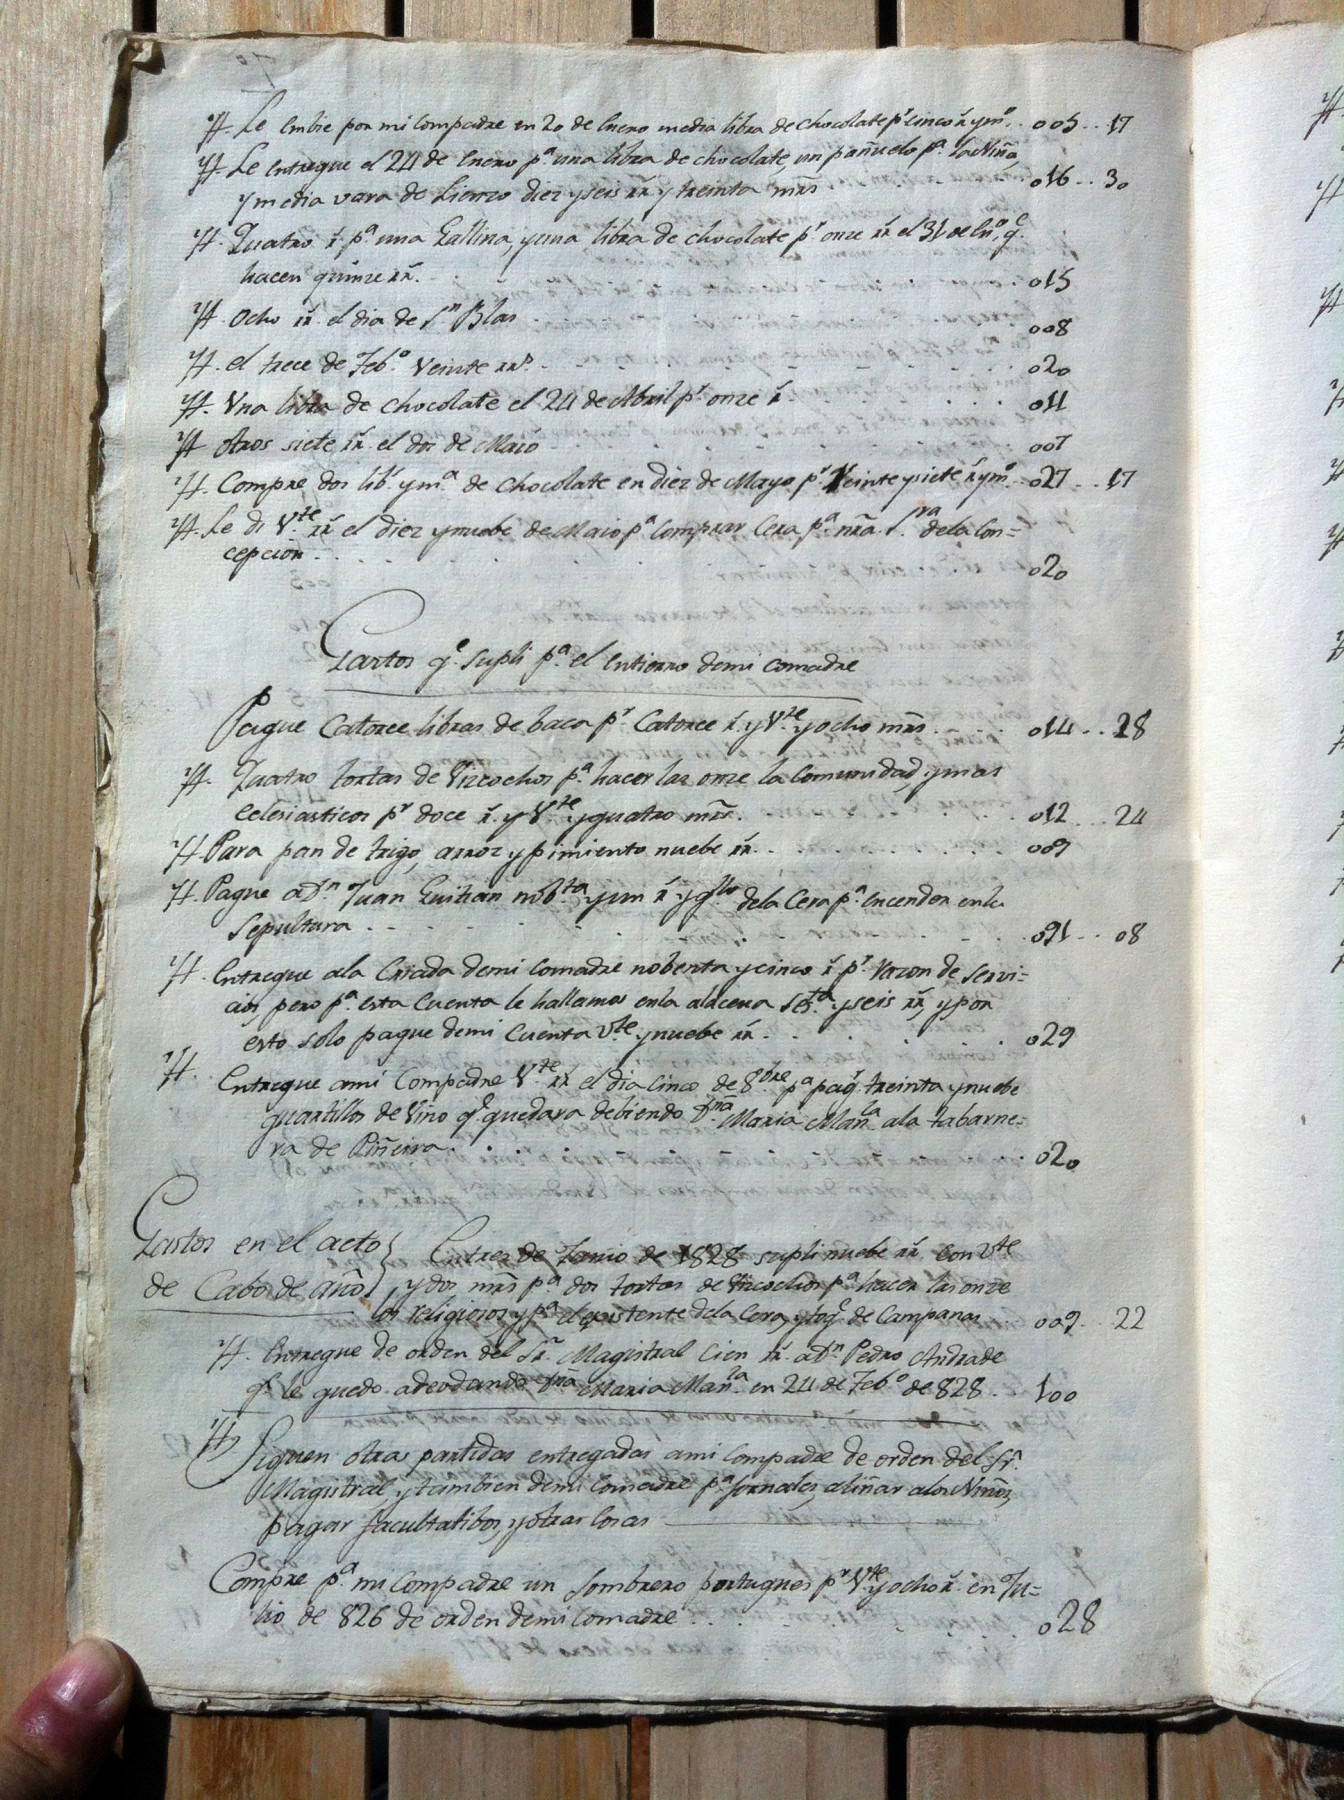 Yt. Le Embie por mi Compadre en 20 de Enero media libra de chocolate pr cinco rs y mo .. 005.. 17
Yt. Le entregue el 24 de Enero pa una libra de chocolate, un pañuelo pa la Niña
y media vara de Lienzo diez y seis rrs y treinta mrs 016.. 30
Yt. Quatro rs pa una Gallina, y una libra de chocolate pr onze rrs el 31 de Eno, qe
hacen quinze rrs. 015
Yt. Ocho rrs el dia de Sn Blas 008
Yt. el trece de Febo Veinte rrs. 020
Yt. Vna libra de chocolate el 24 de Abril pr onze rs 011
Yt otros siete rrs el dos de Maio 007
Yt. Compre dos libs y ma de chocolate en diez de Mayo pr Veinte y siete rs y mo 027.. 17
Yt. Le di Vte rrs el diez y nuebe de Maio pa comprar Cera pa nra Sra de la Con=
cepcion 020
Gastos qe supli pa el Entierro de mi comadre
Pague Catorce libras de baca pr Catorce rs y Vte y ocho mrs 014.. 28
Yt. Quatro tortas de Vizcochos pa hacer las onze la Comunidad, y mas
Eclesiasticos pr doce rs y Vte y quatro mrs. 012... 24
Yt. Para pan de trigo, arroz y pimiento nuebe rrs. 009
Yt. Pague a Dn Juan Guitian nobta y un rs y qllo de la Cera pa Encender en la
Sepultura 091.. 08
Yt. Entregue a la Criada de mi Comadre nobenta y cinco rs pr razon de servi=
cios, pero pa esta Cuenta le hallamos en la alacena seta y seis rrs, y por
esto solo pague de mi Cuenta Vte y nuebe rrs. 029
Yt. Entregue a mi Compadre Vte rrs el dia cinco de 8bre pa pagr treinta y nuebe
quartillos de Vino qe quedara debiendo Dña Maria Manla a la tabarne=
ra de Piñeira. 020
Gastos en el acto
de Cabo de año
En tres de Junio de 1828 supli nuebe rrs con Vte
y dos mrs pa dos tortas de Vizcochos pa hacer las onze
los religiosos y pa el de la Cera, y toqe de Campanas 009.. 22
Yt. Entregue de orden del Sr. Magistral Cien rrs a Dn Pedro Andrade
qe le quedo adeudando Dña Maria Manla en 24 de Febo de 828. 100
Yt Siguen otras partidas entregadas a mi Compadre de orden del Sr.
Magistral, y tambien de mi Comadre pa Jornales, aliñar a los Niños,
pagar facultatibos, y otras Cosas
Compre pa mi Compadre un Sombrero portugues pr Vte y ocho rs en Ju=
lio de 826 de orden de mi Comadre 028